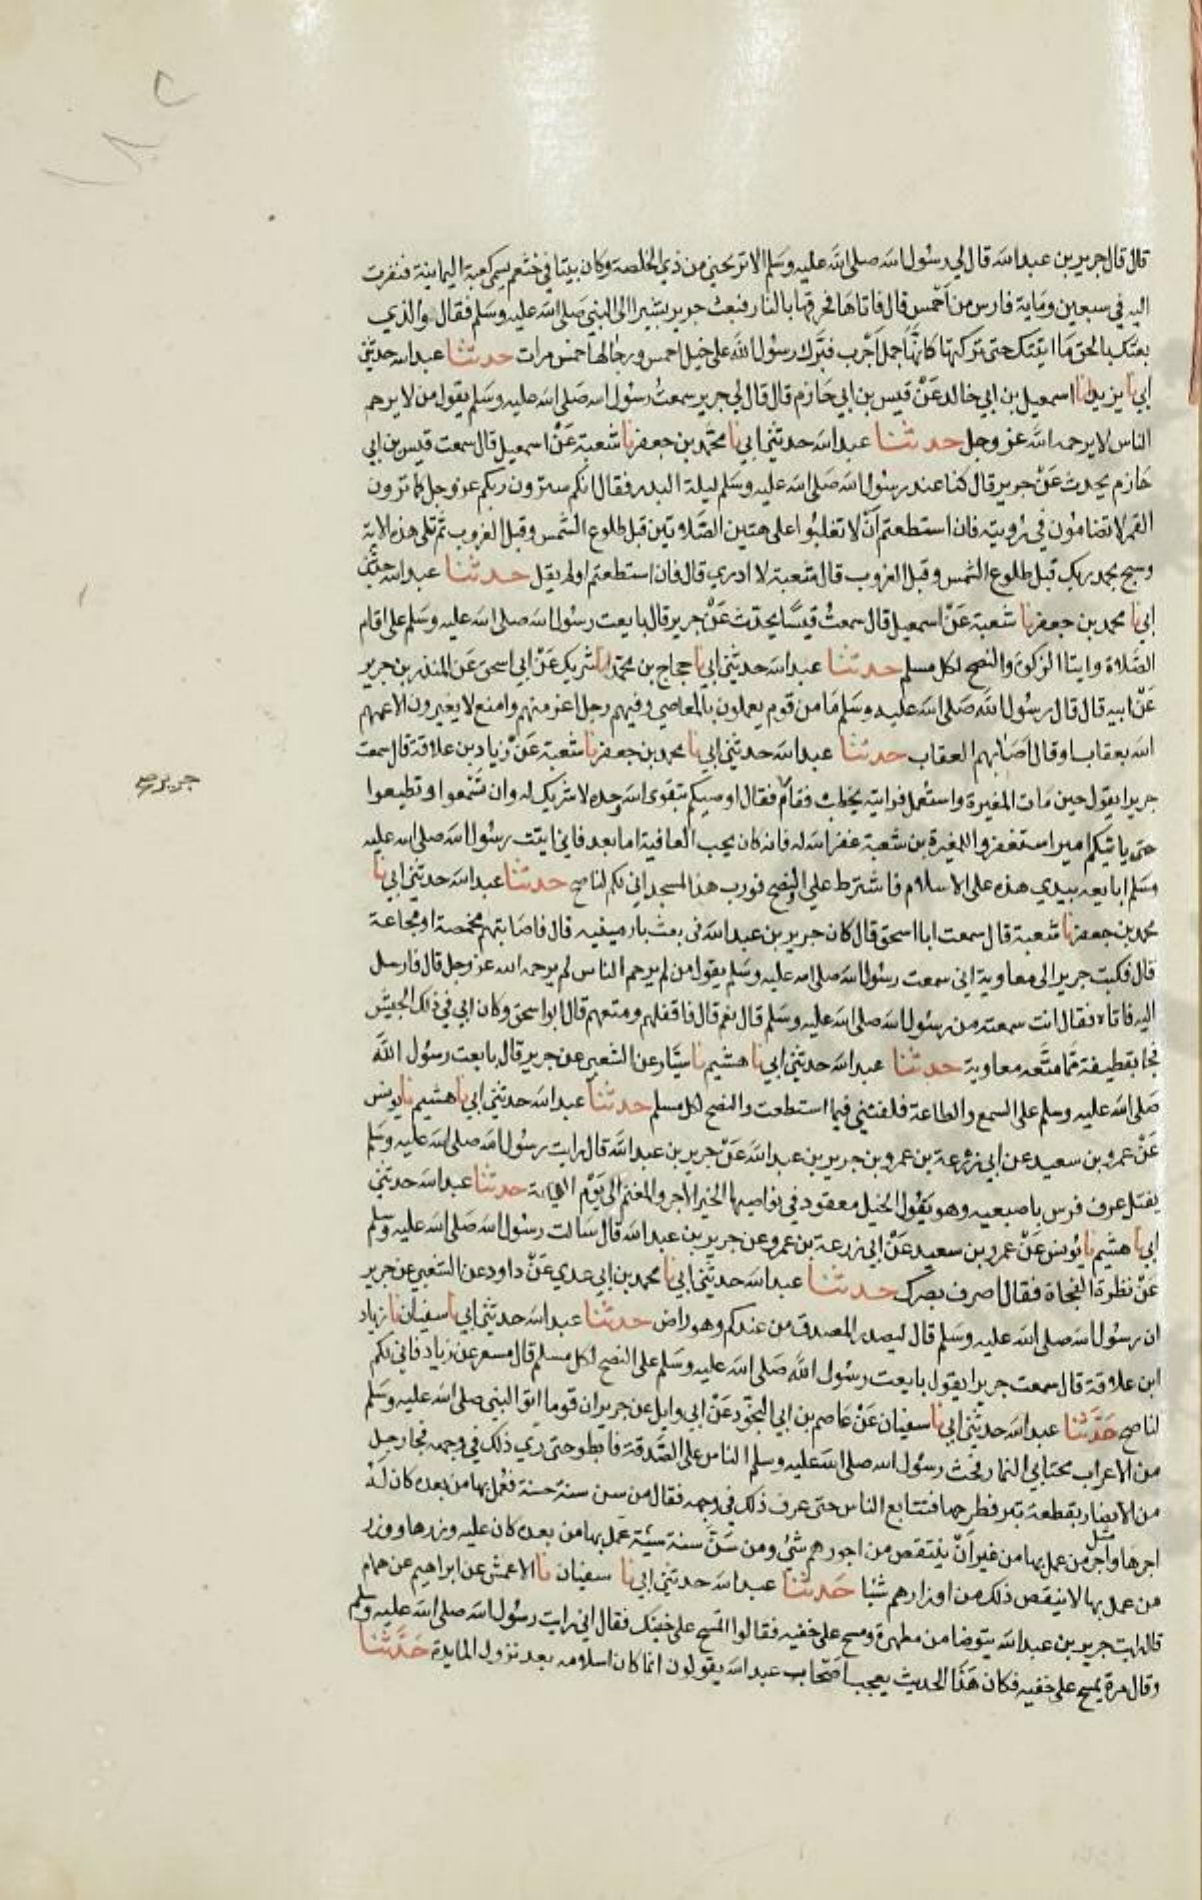 قال قال جرير بن عبد الله قال لي رسول الله صلى الله عليه وسلم الا تريحني من ذي الخلصة وكان بيتا في خثعم يسمى كعبة اليمانية فنفرت
اليه في سبعين ومايه فارس من احمس قال فاتاها فحرقها بالنار فبعث جرير بشيرا الى النبي صلى الله عليه وسلم فقال والذي
بعثك بالحق ما اتيتك حتى تركتها كانها جمل اجرب فبرك رسول الله على خيل احمس ورجالها خمس مرات حدثنا عبد الله حدثني
ابي نا يزيد انا اسمعيل بن ابي خالد عن قيس بن ابي حازم قال قال لي جرير سمعت رسول الله صلى الله عليه وسلم يقول من لا يرحم
الناس لا يرحمه الله عز وجل حدثنا عبد الله حدثني ابي نا محمد بن جعفر نا شعبة عن اسمعيل قال سمعت قيس بن ابي
حازم يحدث عن جرير قال كنا عند رسول الله صلى الله عليه وسلم ليلة البدر فقال انكم سترون ربكم عز وجل كما ترون
القمر لا تضامون في رؤيته فان استطعتم ان لا تغلبوا على هتين الصلاتين قبل طلوع الشمس وقبل الغروب ثم تلى هذه الاية
وسبح بحمد ربك قبل طلوع الشمس وقبل الغروب قال شعبة لا ادري قال فان استطعتم او لم يقل حدثنا عبد الله حدثني
ابي نا محمد بن جعفر نا شعبة عن اسمعيل قال سمعت قيسا يحدث عن جرير قال بايعت رسول الله صلى الله عليه وسلم على اقام
الصلاة وايتا الزكوة والنصح لكل مسلم حدثنا عبد الله حدثني ابي نا حجاج بن محمد انا شريك عن ابي اسحق عن المنذر بن جرير
عن ابيه قال قال رسول الله صلى الله عليه وسلم ما من قوم يعملون بالمعاصي وفيهم رجل اعز منهم وامنع لا يغيرون الا عمهم
الله بعقاب او قال اصابهم العقاب حدثنا عبد الله حدثني ابي نا محمد بن جعفر نا شعبة عن زياد بن علاقة قال سمعت
جريرا يقول حين مات المغيرة واستعمل قرابته يخطب فقام فقال اوصيكم بتقوى الله وحده لا شريك له وان تسمعوا وتطيعوا
حتى ياتيكم امير استغفروا للمغيرة بن شعبة غفر الله له فانه كان يحب العافية اما بعد فاني اتيت رسول الله صلى الله عليه
وسلم ابايعه بيدي هذه على الاسلام فاشترط علي النصح فورب هذا المسجد اني لكم لناصح حدثنا عبد الله حدثني ابي نا
محمد بن جعفر نا شعبة قال سمعت ابا اسحق قال كان جرير بن عبد الله في بعث بارمينيه قال فاصابتهم مخمصة او مجاعة
قال فكتب جرير الى معاوية اني سمعت رسول الله صلى الله عليه وسلم يقول من لم يرحم الناس لم يرحمه الله عز وجل قال فارسل
اليه فاتاه فقال انت سمعته من رسول الله صلى الله عليه وسلم قال نعم قال فاقفلهم ومتعهم قال ابو اسحق وكان ابي في ذلك الجيش
فجا بقطيفة مما متعه معاوية حدثنا عبد الله حدثني ابي نا هشيم نا سيار عن الشعبي عن جرير قال بايعت رسول الله
صلى الله عليه وسلم على السمع والطاعة فلقنني فيما استطعت والنصح لكل مسلم حدثنا عبد الله حدثني ابي نا هشيم نا يونس
عن عمرو بن سعيد عن ابي زرعة بن عمرو بن جرير بن عبد الله عن جرير بن عبد الله قال رايت رسول الله صلى الله عليه وسلم
يفتل عرف فرس باصبعيه وهو يقول الخيل معقود في نواصيها الخير الاجر والمغنم الى يوم القيامة حدثنا عبد الله حدثني
ابي نا هشيم نا يونس عن عمرو بن سعيد عن ابي زرعة بن عمرو عن جرير بن عبد الله قال سالت رسول الله صلى الله عليه وسلم
عن نظرة الفجاة فقال اصرف بصرك حدثنا عبد الله حدثني ابي نا محمد بن ابي عدي عن داود عن الشعبي عن جرير
ان رسول الله صلى الله عليه وسلم قال ليصدر المصدق من عندكم وهو راض حدثنا عبد الله حدثني ابي نا سفيان نا زياد
ابن علاقة قال سمعت جريرا يقول بايعت رسول الله صلى الله عليه وسلم على النصح لكل مسلم قال مسعر عن زياد فاني لكم
لناصح حدثنا عبد الله حدثني ابي نا سفيان عن عاصم بن ابي النجود عن ابي وايل عن جرير ان قوما اتوا النبي صلى الله عليه وسلم
من الاعراب مجتابي النمار فحث رسول الله صلى الله عليه وسلم الناس على الصدقة فابطوا حتى ري ذلك في وجهه فجا رجل
من الانصار بقطعة تبر فطرحها فتتابع الناس حتى عرف ذلك في وجهه فقال من سن سنة حسنة فعمل بها من بعده كان له
اجرها ومثل اجر من عمل بها من غير ان ينتقص من اجورهم شئ ومن سن سنة سيئة عمل بها من بعده كان عليه وزرها ووزر
من عمل بها لا ينقص ذلك من اوزارهم شيا حدثنا عبد الله حدثني ابي نا سفيان نا الاعمش عن ابراهيم عن همام
قال رايت جرير بن عبد الله يتوضا من مطهرة ومسح على خفيه فقالوا اتمسح على خفيك فقال اني رايت رسول الله صلى الله عليه وسلم
وقال مرة يمسح على خفيه فكان هذا الحديث يعجب اصحاب عبد الله يقولون انما كان اسلامه بعد نزول المايدة حدثنا